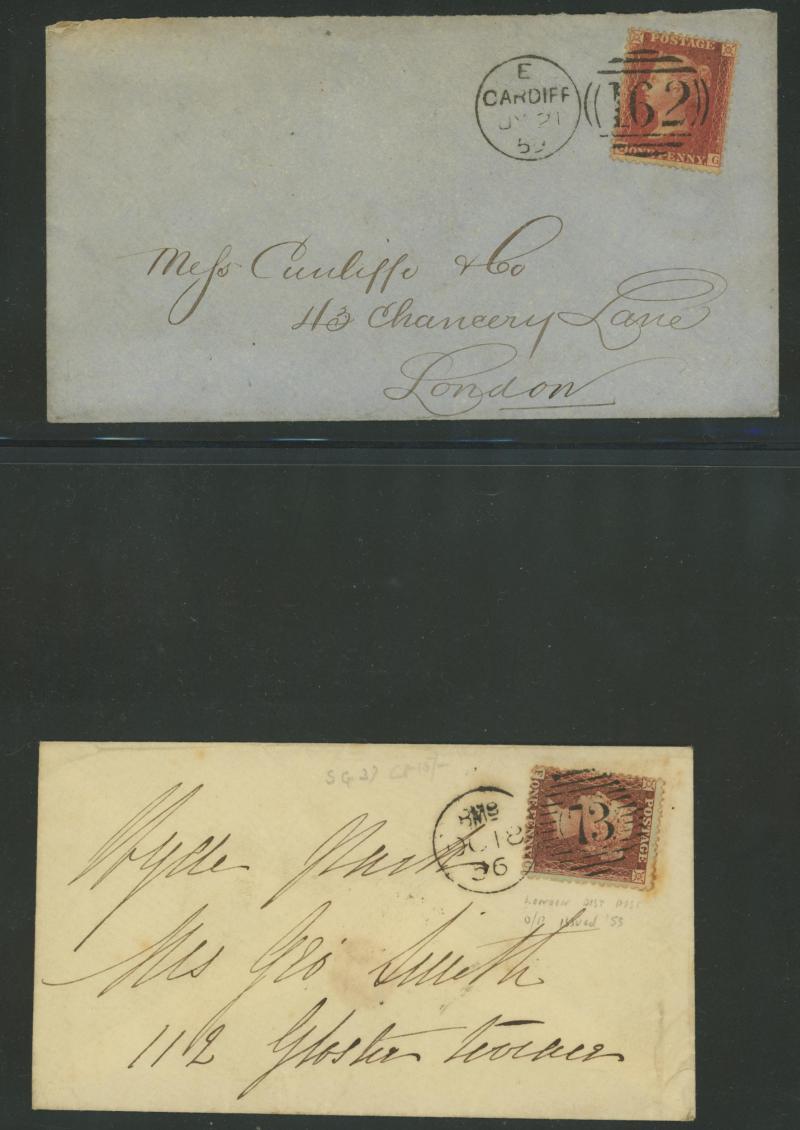 POSTAGE
E
CARDIFF
JY 21
59
162
ONE PENNY G
Mess Cunliffe & Co
43 Chancery Lane
London
SG 27
8MB
OC 18
56
73
POSTAGE
ONE PENNY
Hyde Park
Mrs Geo Smith
112 Gloster Terrace
LONDON DIST POST
issued '55